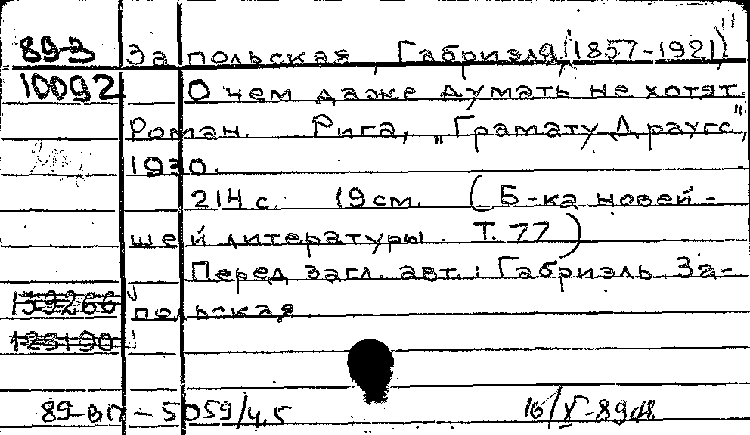 89-3 Запольская, Габриэля (1857-1921)
10092 О чем даже думать не хотят.
Роман. Рига, „Грамату Драугс",
1930.
214 с. 19 см. (Б-ка новей-
шей литературы. Т. 77)
Перед загл. авт.: Габриэль За-
139266 польская.
125190
89-вп-5059/4,5 16/V-89